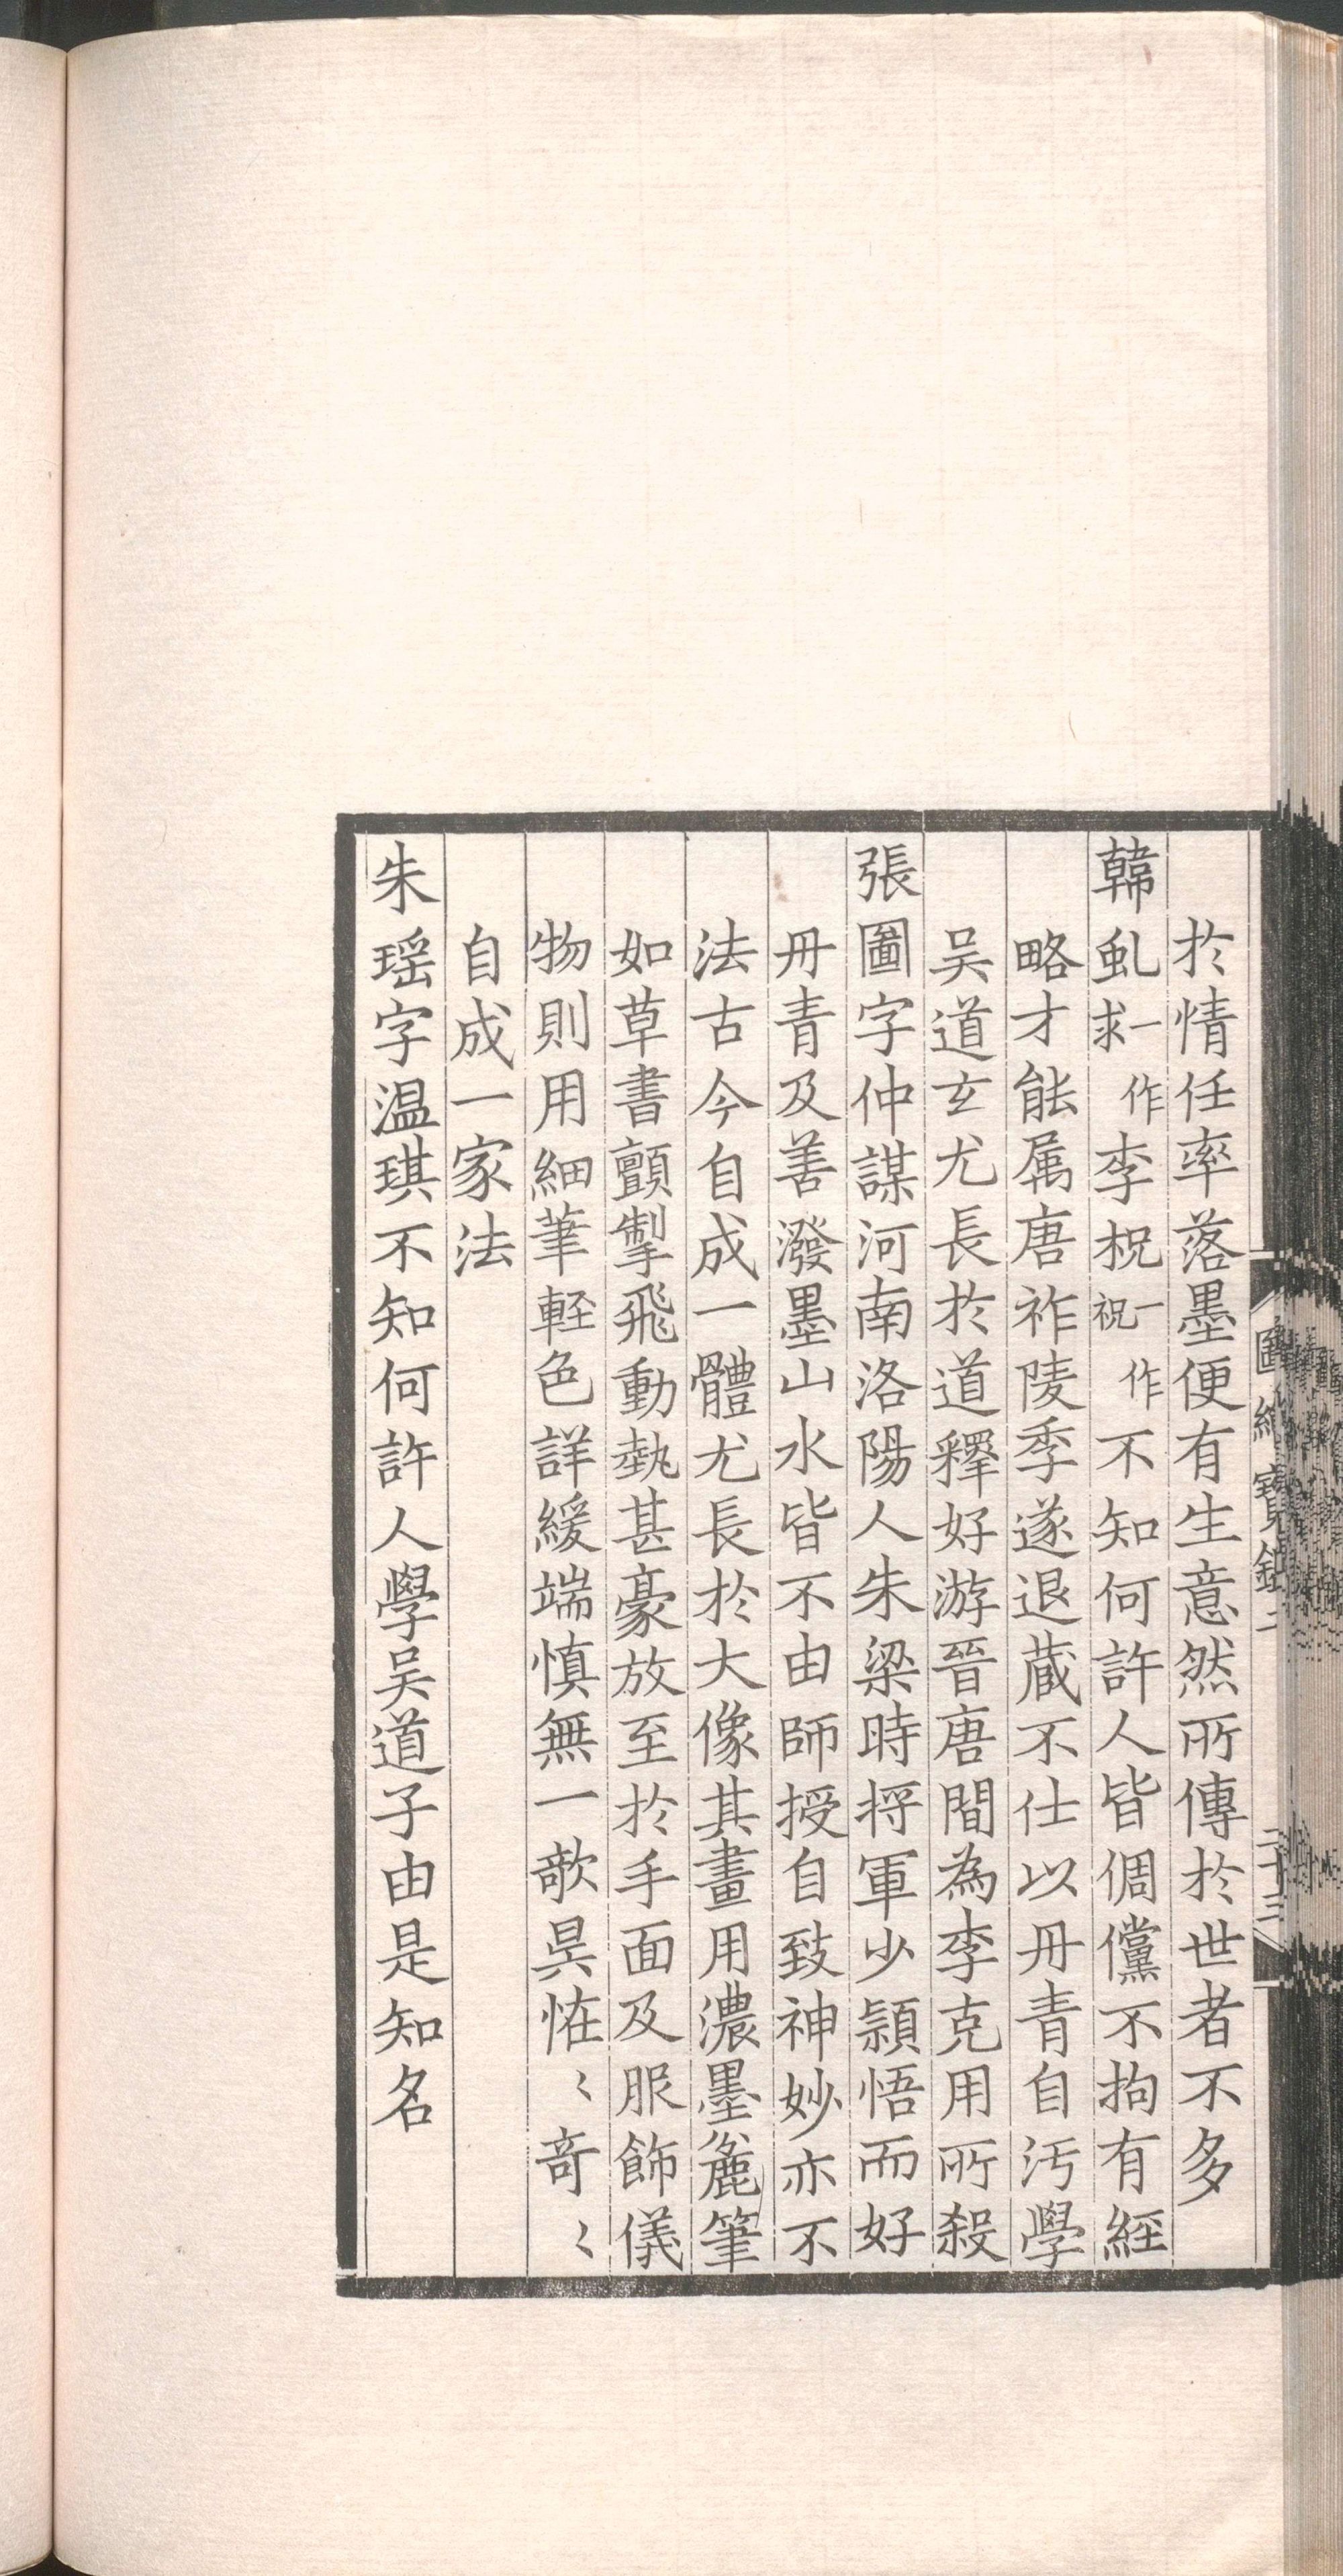 於情任率落墨便有生意然所傳於世者不多
韓虬一作求李柷一作祝不知何許人皆倜儻不拘有經
略才能属唐祚陵季遂退蔵不仕以丹青自汚學
吴道玄尤長於道釋好游晉唐間為李克用所殺
張圖字仲謀河南洛陽人朱梁時将軍少頴悟而好
丹青及善潑墨山水皆不由師授自致神妙亦不
法古今自成一體尤長於大像其畫用濃墨麁筆
如草書顫掣飛動埶甚豪放至於手面及服飾儀
物則用細筆軽色詳緩端慎無一欹㫷恠〻竒〻
自成一家法
朱瑶字温琪不知何許人學吴道子由是知名
圖繪寳鑑二
二十三